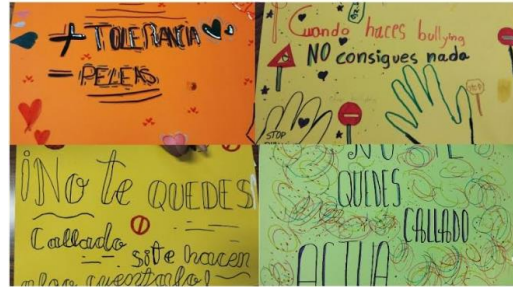 + TOLERANCIA
= PELEAS
Cuando haces bullying
NO consigues nada
STOP
¡No te QUEDES
Callado si te hacen
algo cuentalo!
NO TE
QUEDES
CALLADO
ACTUA